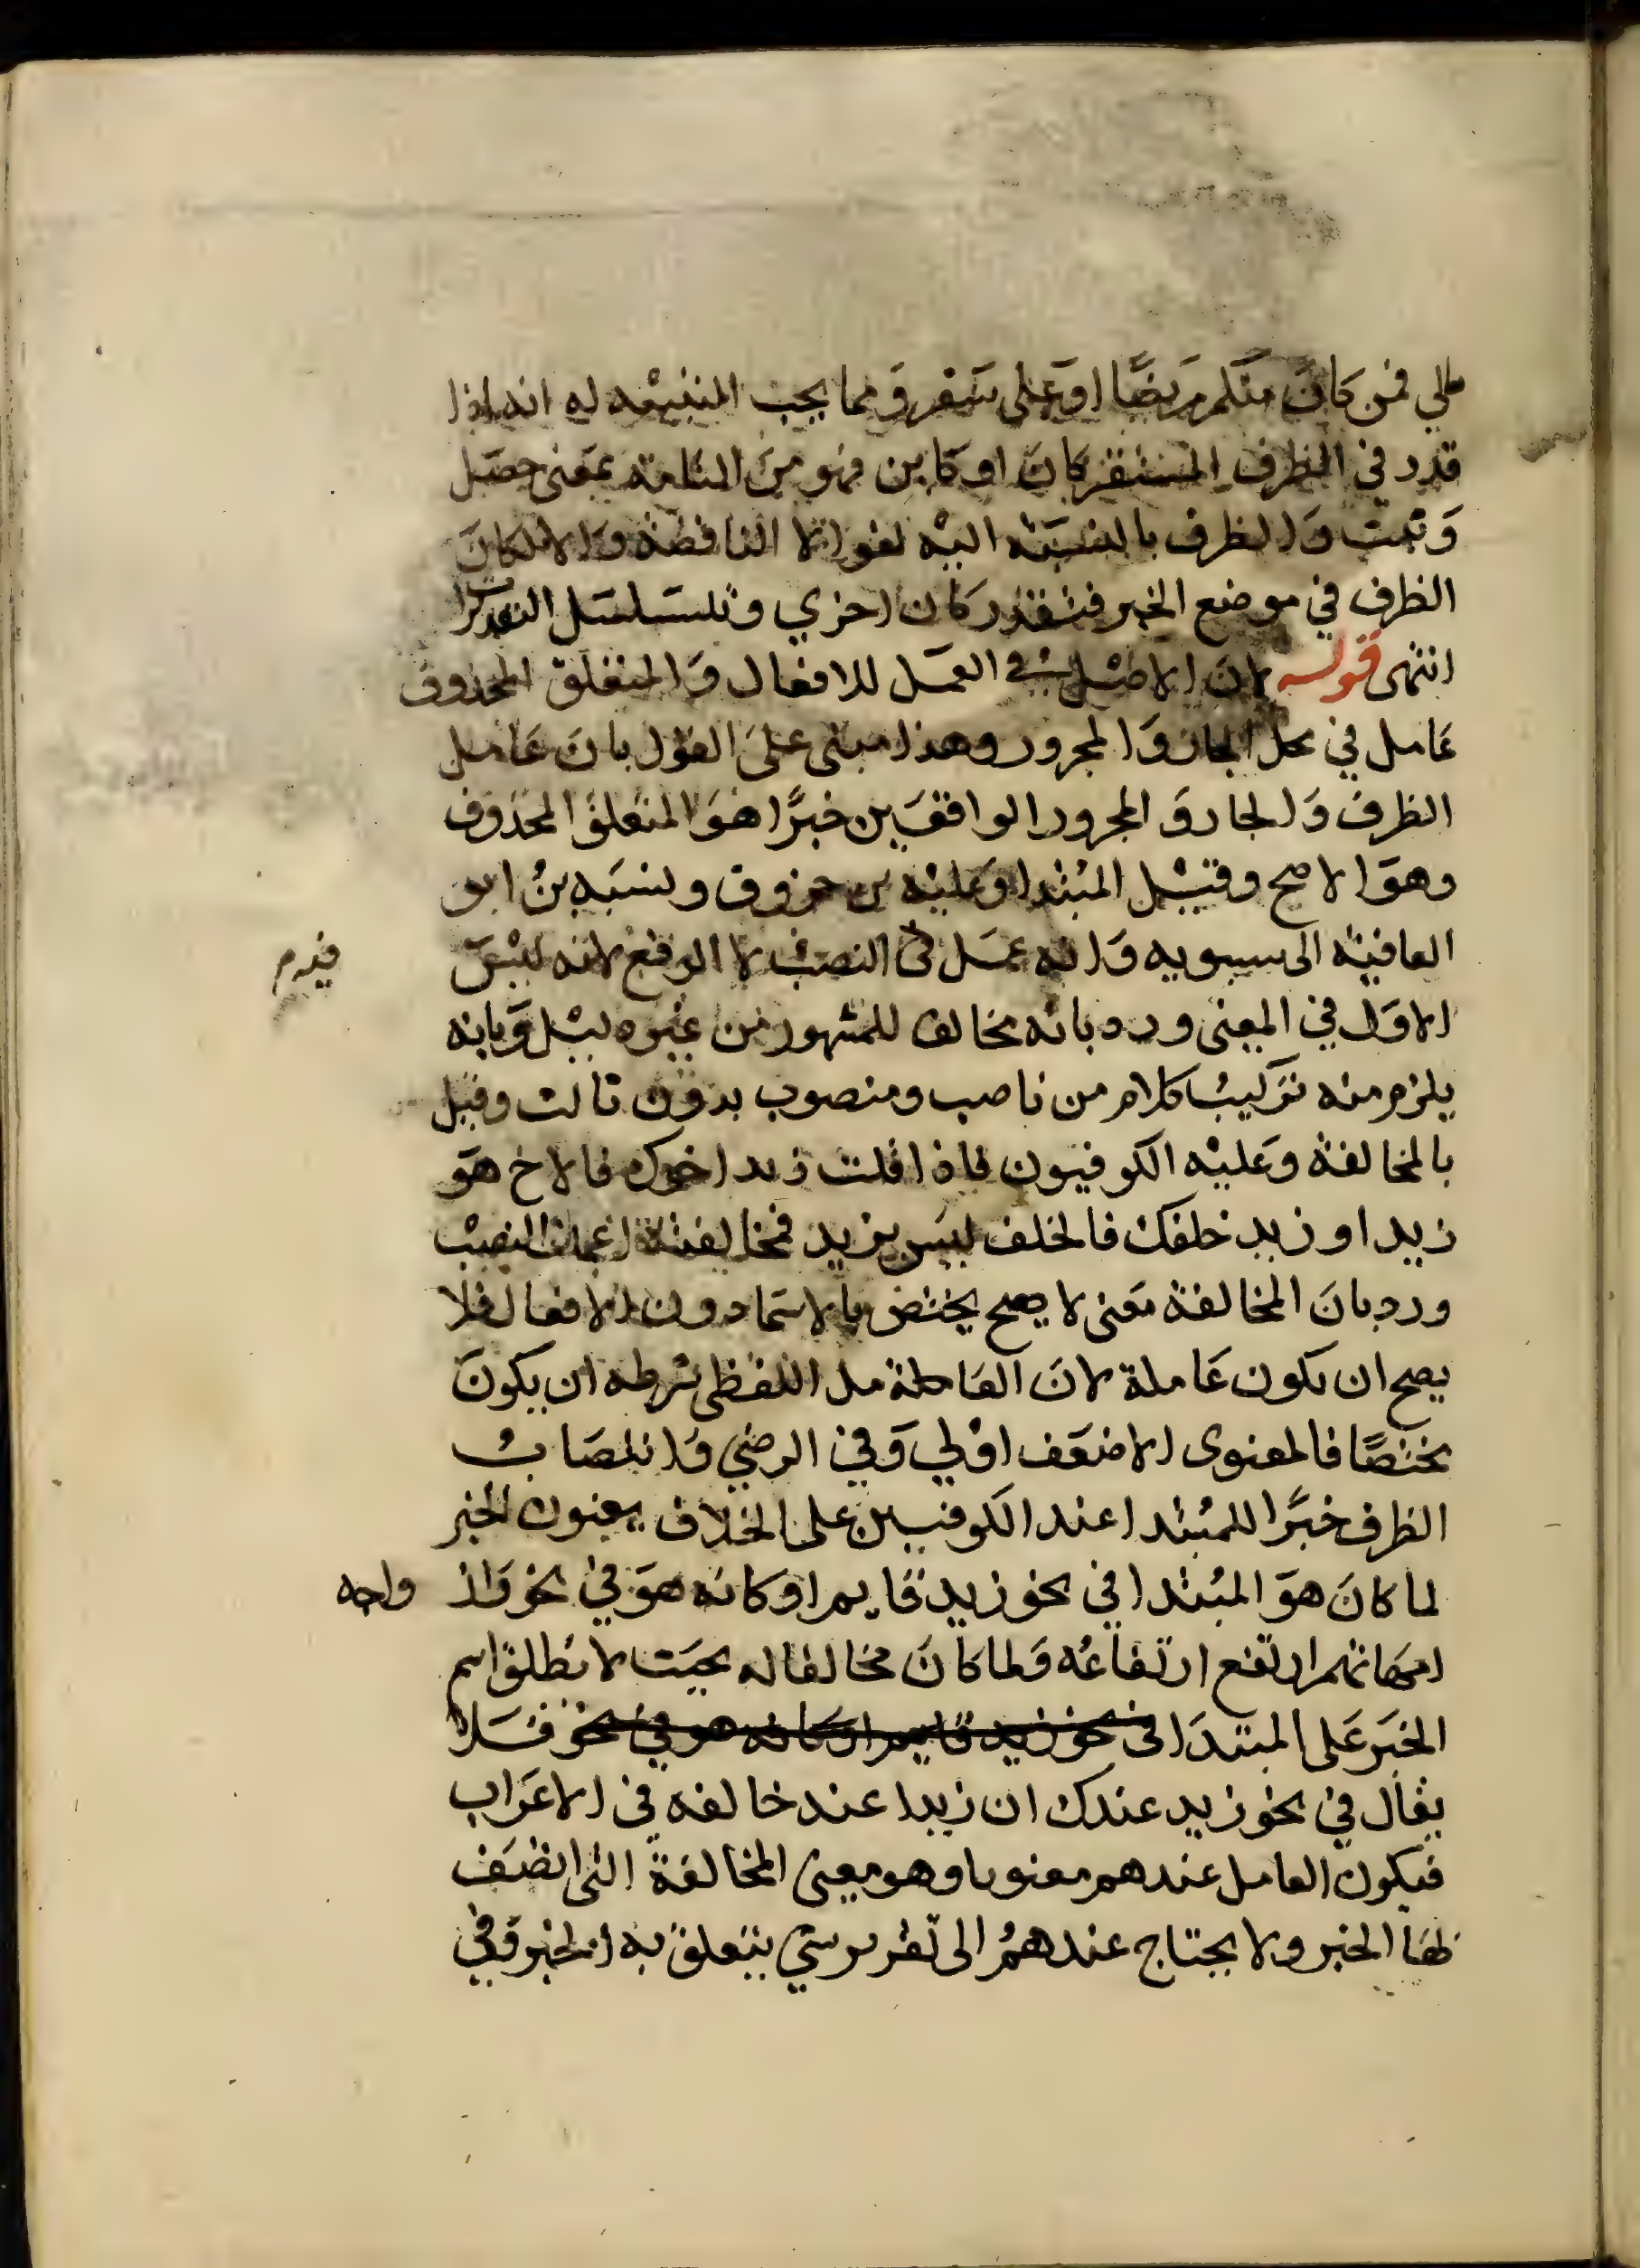 لي فمن كان منكم مريضًا او على سفر ومما يجب التنبيه له انه اذا
قدر في الظرف المستقر كان او كاين فهو من التامة بمعنى حصل
وثبت والظرف بالنسبة اليه لغو لا الناقصة والا لكان
الظرف في موضع الخبر فتقدر كان اخري وتتسلسل التقديرات
انتهى قوله لان الاصل في العمل للافعال والمتعلق المحذوف
عامل في محل الجار والمجرور وهذا مبنى على القول بان عامل
الظرف والجار والمجرور الواقعين خبرًا هو المتعلق المحذوف
وهو الاصح وقيل المبتدا وعليه بن خروف ونسبه بن ابو
العافية الى سيبويه وانه عمل في النصب لا الرفع لانه ليس
الاول في المعنى ورد بانه مخالف للمشهور من غيره ليل وبانه
يلزم منه تركيب كلام من ناصب ومنصوب بدون ثالث وقيل
بالمخالفة وعليه الكوفيون فاذا قلت زيد اخوك فالاخ هو
زيد او زيد خلفك فالخلف ليس بزيد فمخالفته اعملت النصب
ورد بان المخالفة معنى لا يصح يختص بالاسما دون الافعال فلا
يصح ان تكون عاملة لان العامل اللفظي شرطه ان يكون
مختصًا فالمعنوى الاضعف اولي وفي الرضي وانتصاب
الظرف خبرًا للمبتدا عند الكوفيين على الخلاف يعنون الخبر
لما كان هو المبتدا في نحو زيد قايم او كانه هو في نحو واز واجه
امهاتهم ارتفع ارتفاعه ولما كان مخالفا له بحيث لا يطلق اسم
الخبر على المبتدا في نحو زيد قايم او كانه هو في نحو فلا
يقال في نحو زيد عندك ان زيدا عند خالفه في الاعراب
فيكون العامل عندهم معنويا وهو معنى المخالفة التى اتصف
بها الخبر ولا يحتاج عندهم الى تقدير شي يتعلق به الخبر وفي